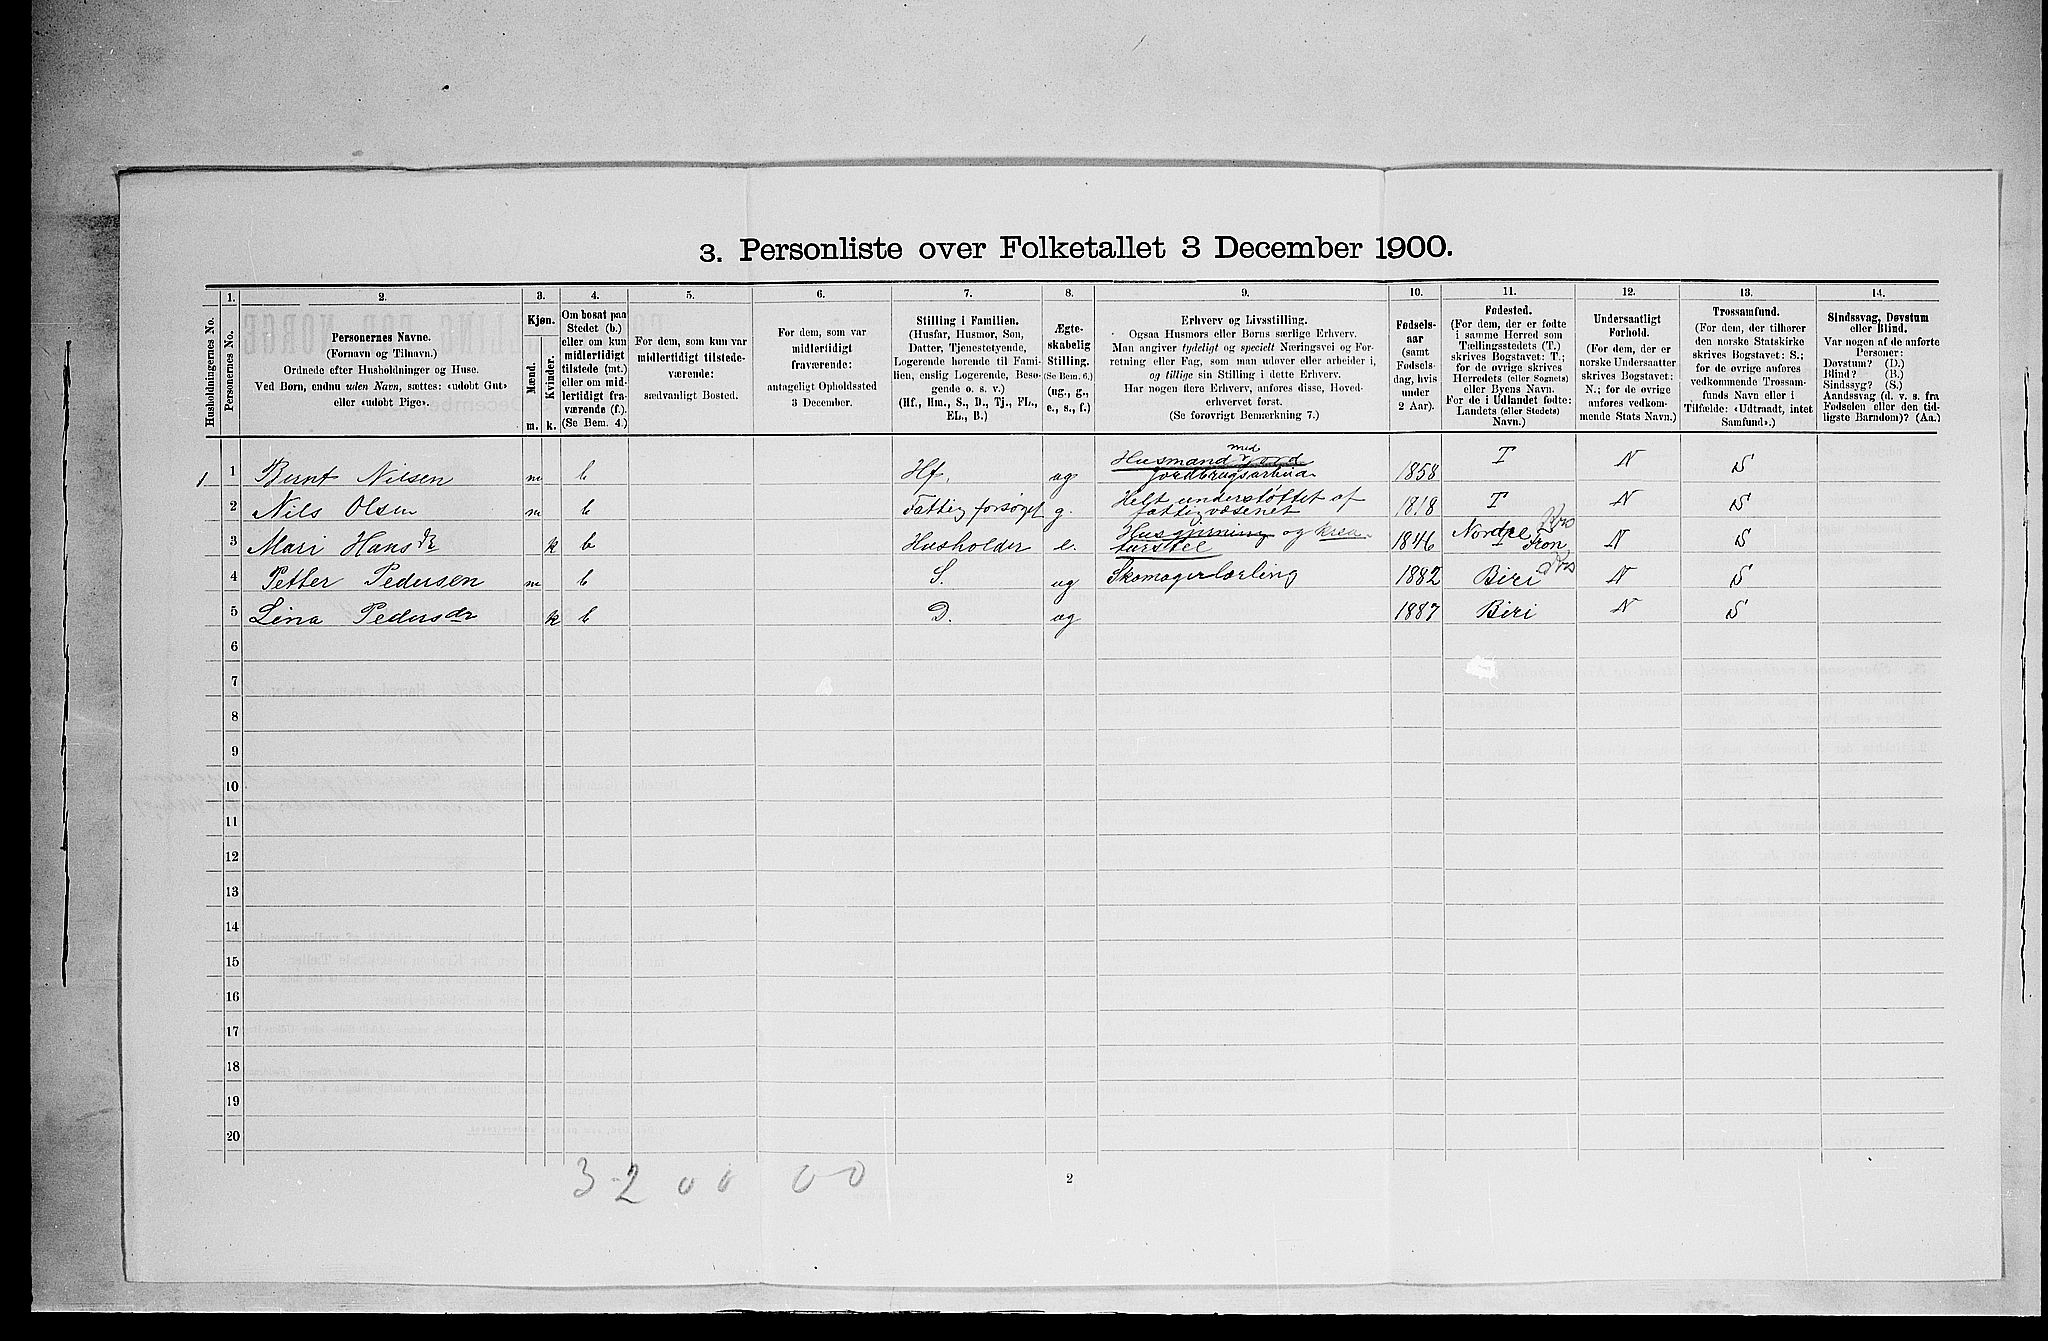 3. Personliste over Folketallet 3 December 1900.
Husholdningernes No.
1.
Personernes No.
2.
Personernes Navne.
(Fornavn og Tilnavn.)
Ordnede efter Husholdninger og Huse.
Ved Børn, endnu uden Navn, sættes: «udøbt Gut»
eller «udøbt Pige».
3.
Kjøn.
Mænd.
Kvinder.
m. k.
4.
Om bosat paa
Stedet (b.)
eller om kun
midlertidigt
tilstede (mt.)
eller om mid-
lertidigt fra-
værende (f.).
(Se Bem. 4.)
5.
For dem, som kun var
midlertidigt tilstede-
værende:
sædvanligt Bosted.
6.
For dem, som var
midlertidigt
fraværende:
antageligt Opholdssted
3 December.
7.
Stilling i Familien.
(Husfar, Husmor, Søn,
Datter, Tjenestetyende,
Logerende hørende til Fami-
lien, enslig Logerende, Besø-
gende o. s. v.)
(Hf., Hm., S., D., Tj., FL.,
EL., B.)
8.
Ægte-
skabelig
Stilling.
(Se Bem. 6.)
(ug., g.,
e., s., f.)
9.
Erhverv og Livsstilling.
Ogsaa Husmors eller Børns særlige Erhverv.
Man angiver tydeligt og specielt Næringsvei og For-
retning eller Fag, som man udøver eller arbeider i,
og tillige sin Stilling i dette Erhverv.
Har nogen flere Erhverv, anføres disse, Hoved-
erhvervet først.
(Se forøvrigt Bemærkning 7.)
10.
Fødsels-
aar
(samt
Fødsels-
dag, hvis
under
2 Aar).
11.
Fødested.
(For dem, der er fødte
i samme Herred som
Tællingsstedets (T.)
skrives Bogstavet: T.;
for de øvrige skrives
Herredets (eller Sognets)
eller Byens Navn.
For de i Udlandet fødte:
Landets (eller Stedets)
Navn.)
12.
Undersaatligt
Forhold.
(For dem, der er
norske Undersaatter
skrives Bogstavet:
N.; for de øvrige
anføres vedkom-
mende Stats Navn.)
13.
Trossamfund.
(For dem, der tilhører
den norske Statskirke
skrives Bogstavet: S.;
for de øvrige anføres
vedkommende Trossam-
funds Navn eller i
Tilfælde: «Udtraadt, intet
Samfund».)
14.
Sindssvag, Døvstum
eller Blind.
Var nogen af de anførte
Personer:
Døvstum? (D.)
Blind? (B.)
Sindssyg? (S.)
Aandssvag (d. v. s. fra
Fødselen eller den tid-
ligste Barndom)? (Aa.)
1 1 Bernt Nilsen m b Hf. ug Husmand med Jord jordbrugsarbeid 1858 T N S
2 Nils Olsen m b Fattig forsørget g. Helt understøttet af fattigvæsenet 1818 T N S
3 Mari Hansdr k b Husholder e. Husgjerning og krea- turstel 1846 Nordre Fron N S
4 Petter Pedersen m b S. ug Skomagerlærling 1882 Biri N S
5 Lina Pedersdr k b D. ug 1887 Biri N S
6
7
8
9
10
11
12
13
14
15
16
17
18
19
20
3-2 00 00
2